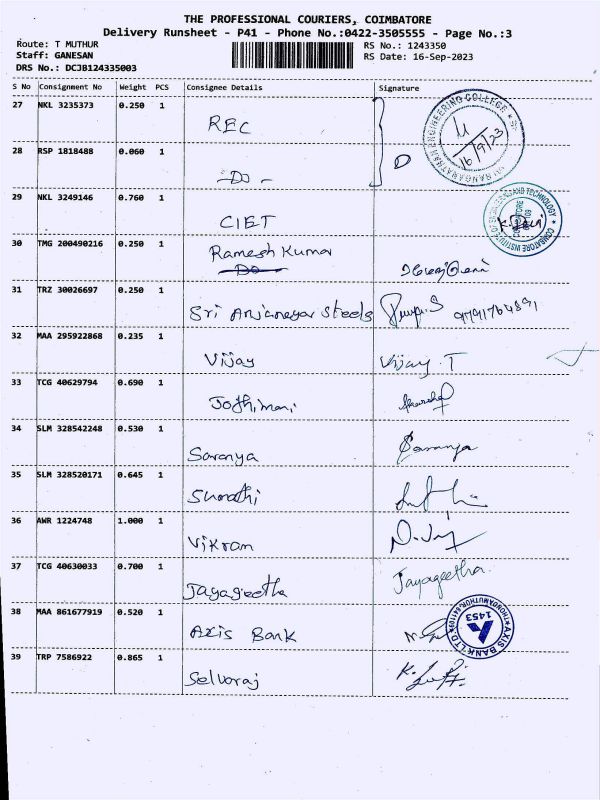 THE PROFESSIONAL COURIERS, COIMBATORE
Delivery Runsheet - P41 - Phone No.:0422-3505555 - Page No.:3
Route: T MUTHUR
Staff: GANESAN
DRS No.: DCJB124335003
RS No.: 1243350
RS Date: 16-Sep-2023
S No Consignment No Weight PCS Consignee Details Signature
27 NKL 3235373 0.250 1 REC
28 RSP 1818488 0.060 1 -Do-
16/9/23
29 NKL 3249146 0.760 1 CIET
30 TMG 200490216 0.250 1 Ramesh Kumar
Do
31 TRZ 30026697 0.250 1 Sri Anjaneyar Steels 9791764891
32 MAA 295922868 0.235 1 Vijay Vijay. T
33 TCG 40629794 0.690 1 Jothimani
34 SLM 328542248 0.530 1 Saranya Saranya
35 SLM 328520171 0.645 1 Sumathi
36 AWR 1224748 1.000 1 Vikram
37 TCG 40630033 0.700 1 Jayageetha Jayageetha.
38 MAA 861677919 0.520 1 Axis Bank
AXIS BANK LTD.
1453
39 TRP 7586922 0.865 1 Selvaraj